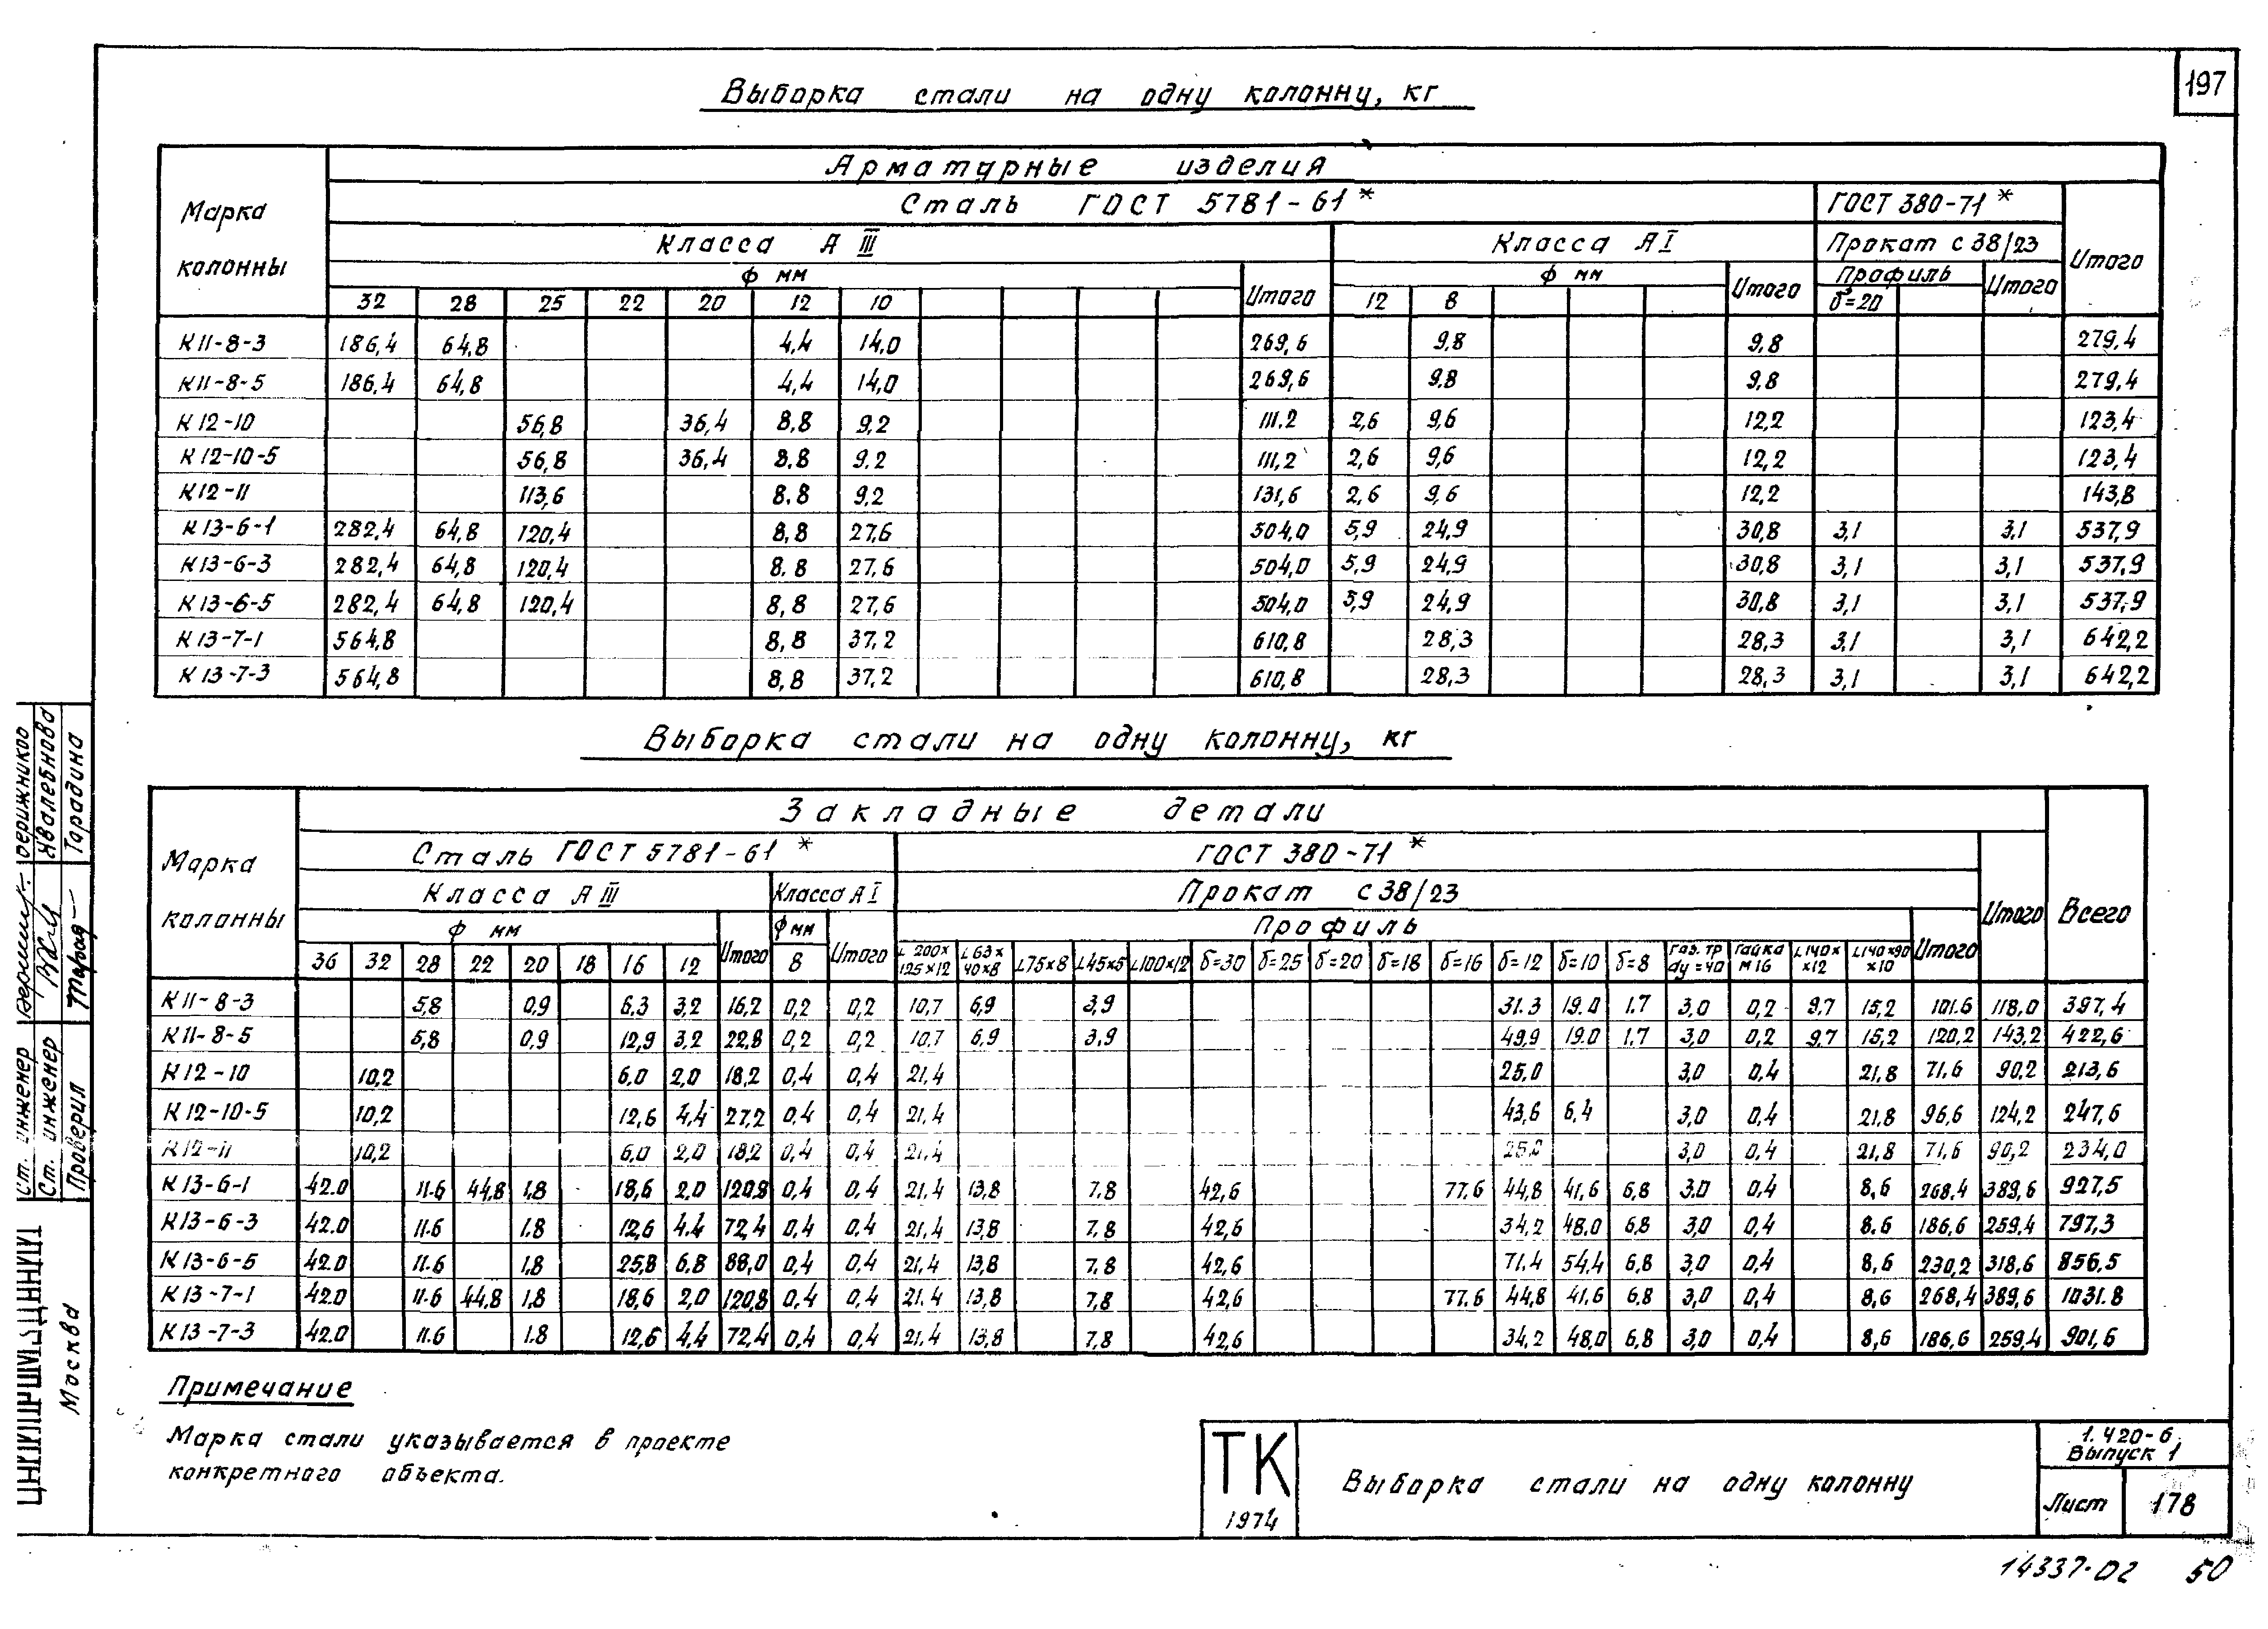 197
Выборка стали на одну колонну, кг
Арматурные изделия
Марка колонны
Сталь ГОСТ 5781-61*
ГОСТ 380-71*
Итого
Класса А III
Класса А I
Прокат с 38/23
ф мм
Итого
ф мм
Итого
Профиль
Итого
32 28 25 22 20 12 10 12 8 δ=20
К11-8-3 186,4 64,8 4,4 14,0 269,6 9,8 9,8 279,4
К11-8-5 186,4 64,8 4,4 14,0 269,6 9,8 9,8 279,4
К12-10 56,8 36,4 8,8 9,2 111.2 2,6 9,6 12,2 123,4
К12-10-5 56,8 36,4 8,8 9,2 111,2 2,6 9,6 12,2 123,4
К12-11 113,6 8,8 9,2 131,6 2,6 9,6 12,2 143,8
К13-6-1 282,4 64,8 120,4 8,8 27,6 504,0 5,9 24,9 30,8 3,1 3,1 537,9
К13-6-3 282,4 64,8 120,4 8,8 27,6 504,0 5,9 24,9 30,8 3,1 3,1 537,9
К13-6-5 282,4 64,8 120,4 8,8 27,6 504,0 5,9 24,9 30,8 3,1 3,1 537,9
К13-7-1 564,8 8,8 37,2 610,8 28,3 28,3 3,1 3,1 642,2
К13-7-3 564,8 8,8 37,2 610,8 28,3 28,3 3,1 3,1 642,2
Выборка стали на одну колонну, кг
Закладные детали
Марка колонны
Сталь ГОСТ 5781-61*
ГОСТ 380-71*
Итого
Всего
Класса А III
Класса А I
Прокат с 38/23
ф мм
Итого
ф мм
Итого
Профиль
Итого
36 32 28 22 20 18 16 12 8 L 200х125х12 L63х40х8 L75х8 L45х5 L100х12 δ=30 δ=25 δ=20 δ=18 δ=16 δ=12 δ=10 δ=8 Газ. тр dу=40 Гайка М16 L140хх12 L140х90х10
К11-8-3 5,8 0,9 6,3 3,2 16,2 0,2 0,2 10,7 6,9 3,9 31.3 19.0 1.7 3,0 0,2 9,7 15,2 101.6 118,0 397,4
К11-8-5 5,8 0,9 12,9 3,2 22,8 0,2 0,2 10,7 6,9 3,9 49,9 19.0 1,7 3,0 0,2 9,7 15,2 120,2 143,2 422,6
К12-10 10,2 6,0 2,0 18,2 0,4 0,4 21,4 25,0 3,0 0,4 21,8 71,6 90,2 213,6
К12-10-5 10,2 12,6 4,4 27,2 0,4 0,4 21,4 43,6 6,4 3,0 0,4 21,8 96,6 124,2 247,6
К12-11 10,2 6,0 2,0 18,2 0,4 0,4 21,4 25,0 3,0 0,4 21,8 71,6 90,2 234,0
К13-6-1 42.0 11.6 44,8 1,8 18,6 2,0 120,8 0,4 0,4 21,4 13,8 7,8 42,6 77,6 44,8 41,6 6,8 3,0 0,4 8,6 268,4 389,6 927,5
К13-6-3 42.0 11.6 1.8 12,6 4,4 72,4 0,4 0,4 21,4 13,8 7,8 42,6 34,2 48,0 6,8 3,0 0,4 8,6 186,6 259,4 797,3
К13-6-5 42.0 11.6 1,8 25,8 6,8 88,0 0,4 0,4 21,4 13,8 7,8 42,6 71,4 54,4 6,8 3,0 0,4 8,6 230,2 318,6 856,5
К13-7-1 42.0 11.6 44,8 1,8 18,6 2,0 120,8 0,4 0,4 21,4 13,8 7,8 42,6 77,6 44,8 41,6 6,8 3,0 0,4 8,6 268,4 389,6 1031.8
К13-7-3 42.0 11.6 1.8 12,6 4,4 72,4 0,4 0,4 21,4 13,8 7,8 42,6 34,2 48,0 6,8 3,0 0,4 8,6 186,6 259,4 901,6
Примечание
Марка стали указывается в проекте
конкретного объекта.
ТК
1974
Выборка стали на одну колонну
1.420-6
Выпуск 1
Лист 178
14337-02 50
Ст. инженер
Ст. инженер
Проверил Тарадина
Москва